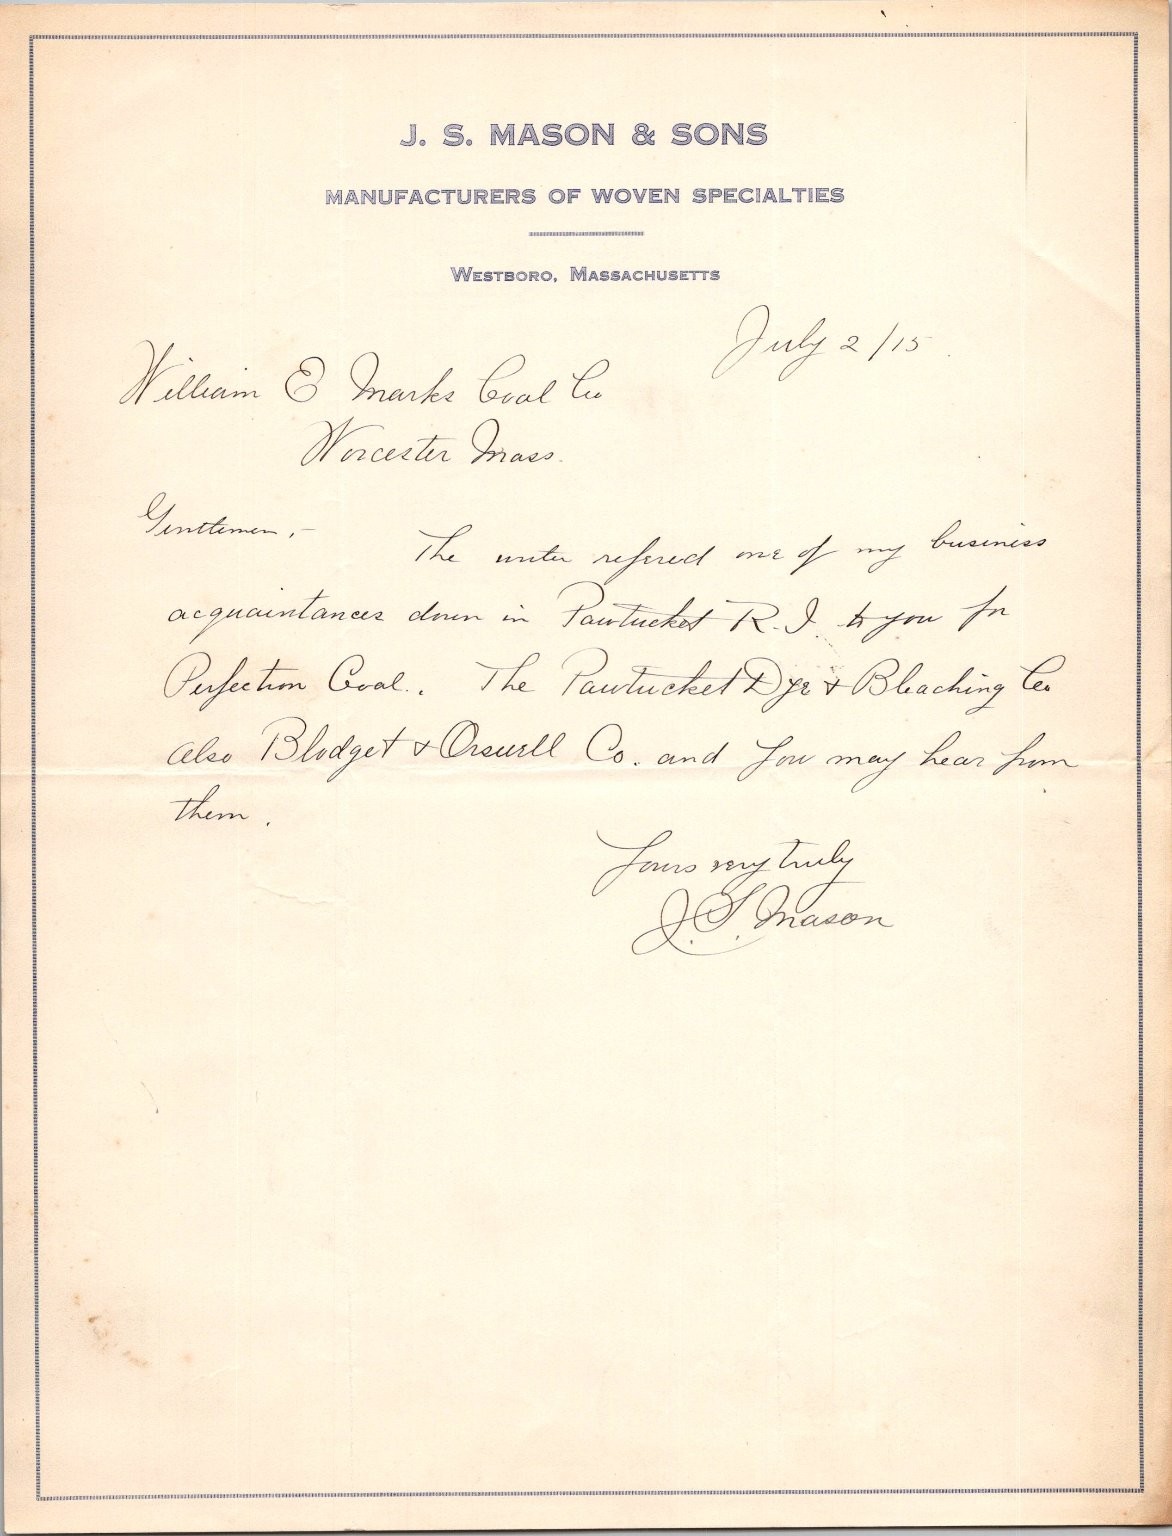 J. S. MASON & SONS
MANUFACTURERS OF WOVEN SPECIALTIES
WESTBORO, MASSACHUSETTS
July 2/15
William E Marks Coal Co
Worcester Mass.
Gentlemen,-
The writer refered one of my business
acquaintances down in Pawtucket R.I. to you for
Perfection Coal. The Pawtucket Dye & Bleaching Co
also Blodget & Orswell Co. and you may hear from
them.
Yours very truly
J. S. Mason